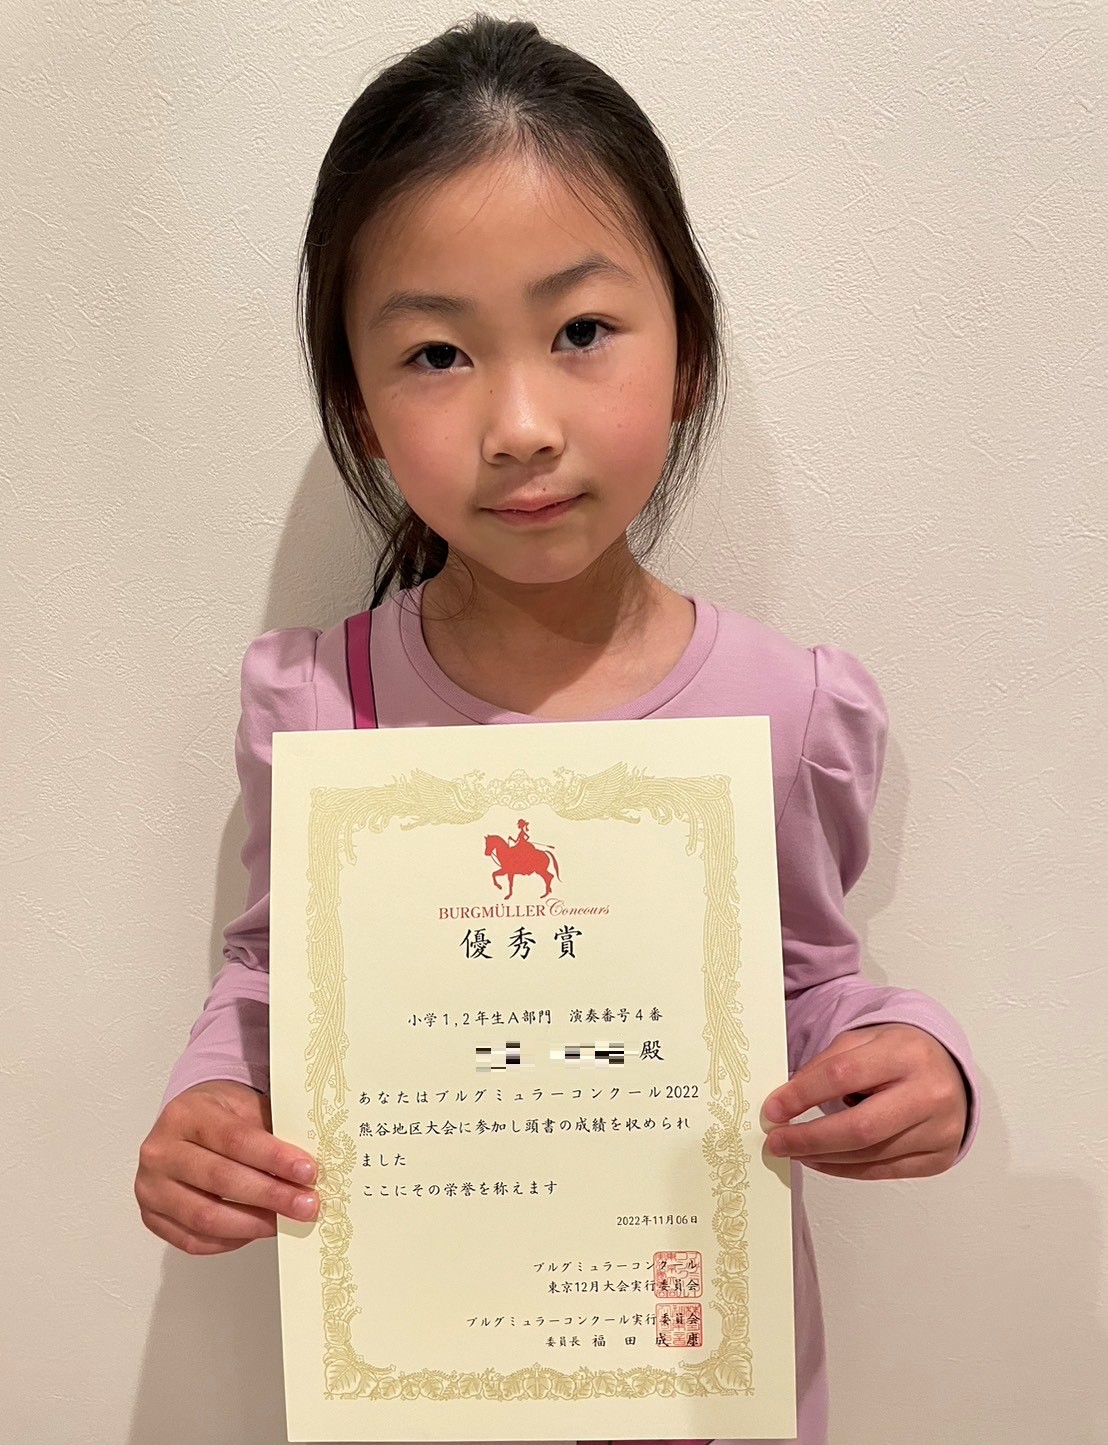 BURGMÜLLER Concours
優秀賞
小学1,2年生A部門 演奏番号4番
殿
あなたはブルグミュラーコンクール2022
熊谷地区大会に参加し頭書の成績を収められ
ました
ここにその栄誉を称えます
2022年11月06日
ブルグミュラーコンクール
東京12月大会実行委員会
ブルグミュラーコンクール実行委員会
委員長 福田成康